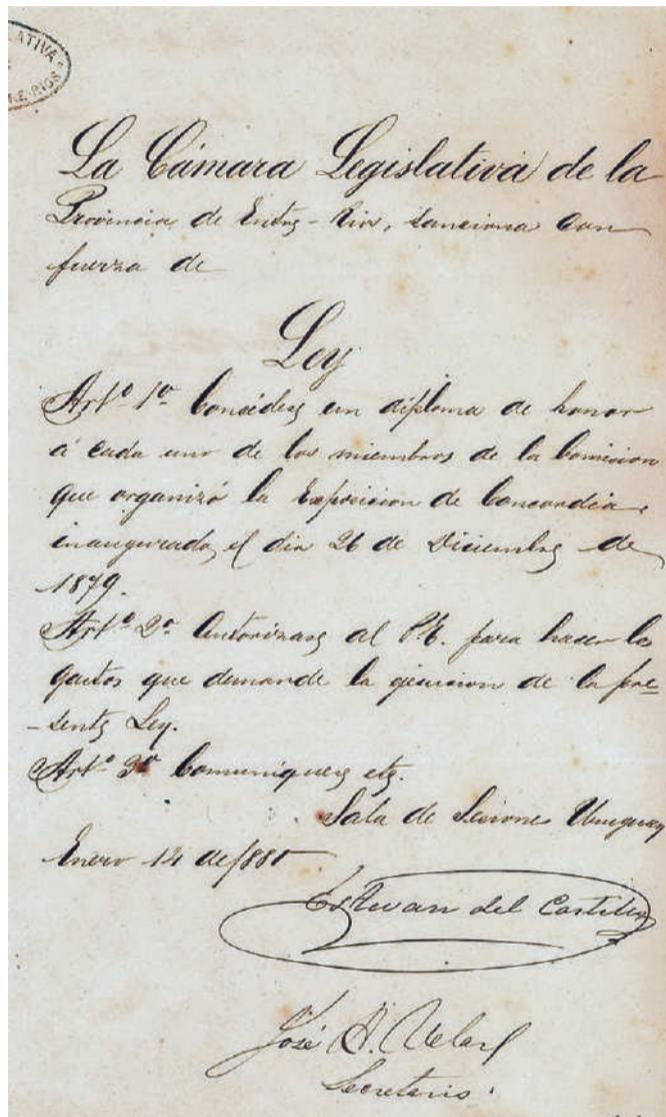 LATIVA
E-RIOS
La Cámara Legislativa de la
Provincia de Entre-Rios, sanciona con
fuerza de
Ley
Artº 1º Concédese un diploma de honor
á cada uno de los miembros de la Comision
que organizó la Exposicion de Concordia,
inaugurada el dia 26 de Diciembre de
1879.
Artº 2º Autorizase al P.E. para hacer los
gastos que demande la ejecucion de la pre
-sente Ley.
Artº 3º Comuniquese etc.
Sala de Sesiones Uruguay
Enero 14 de 1880
Estevan del Castillo
José A.
Secretario.